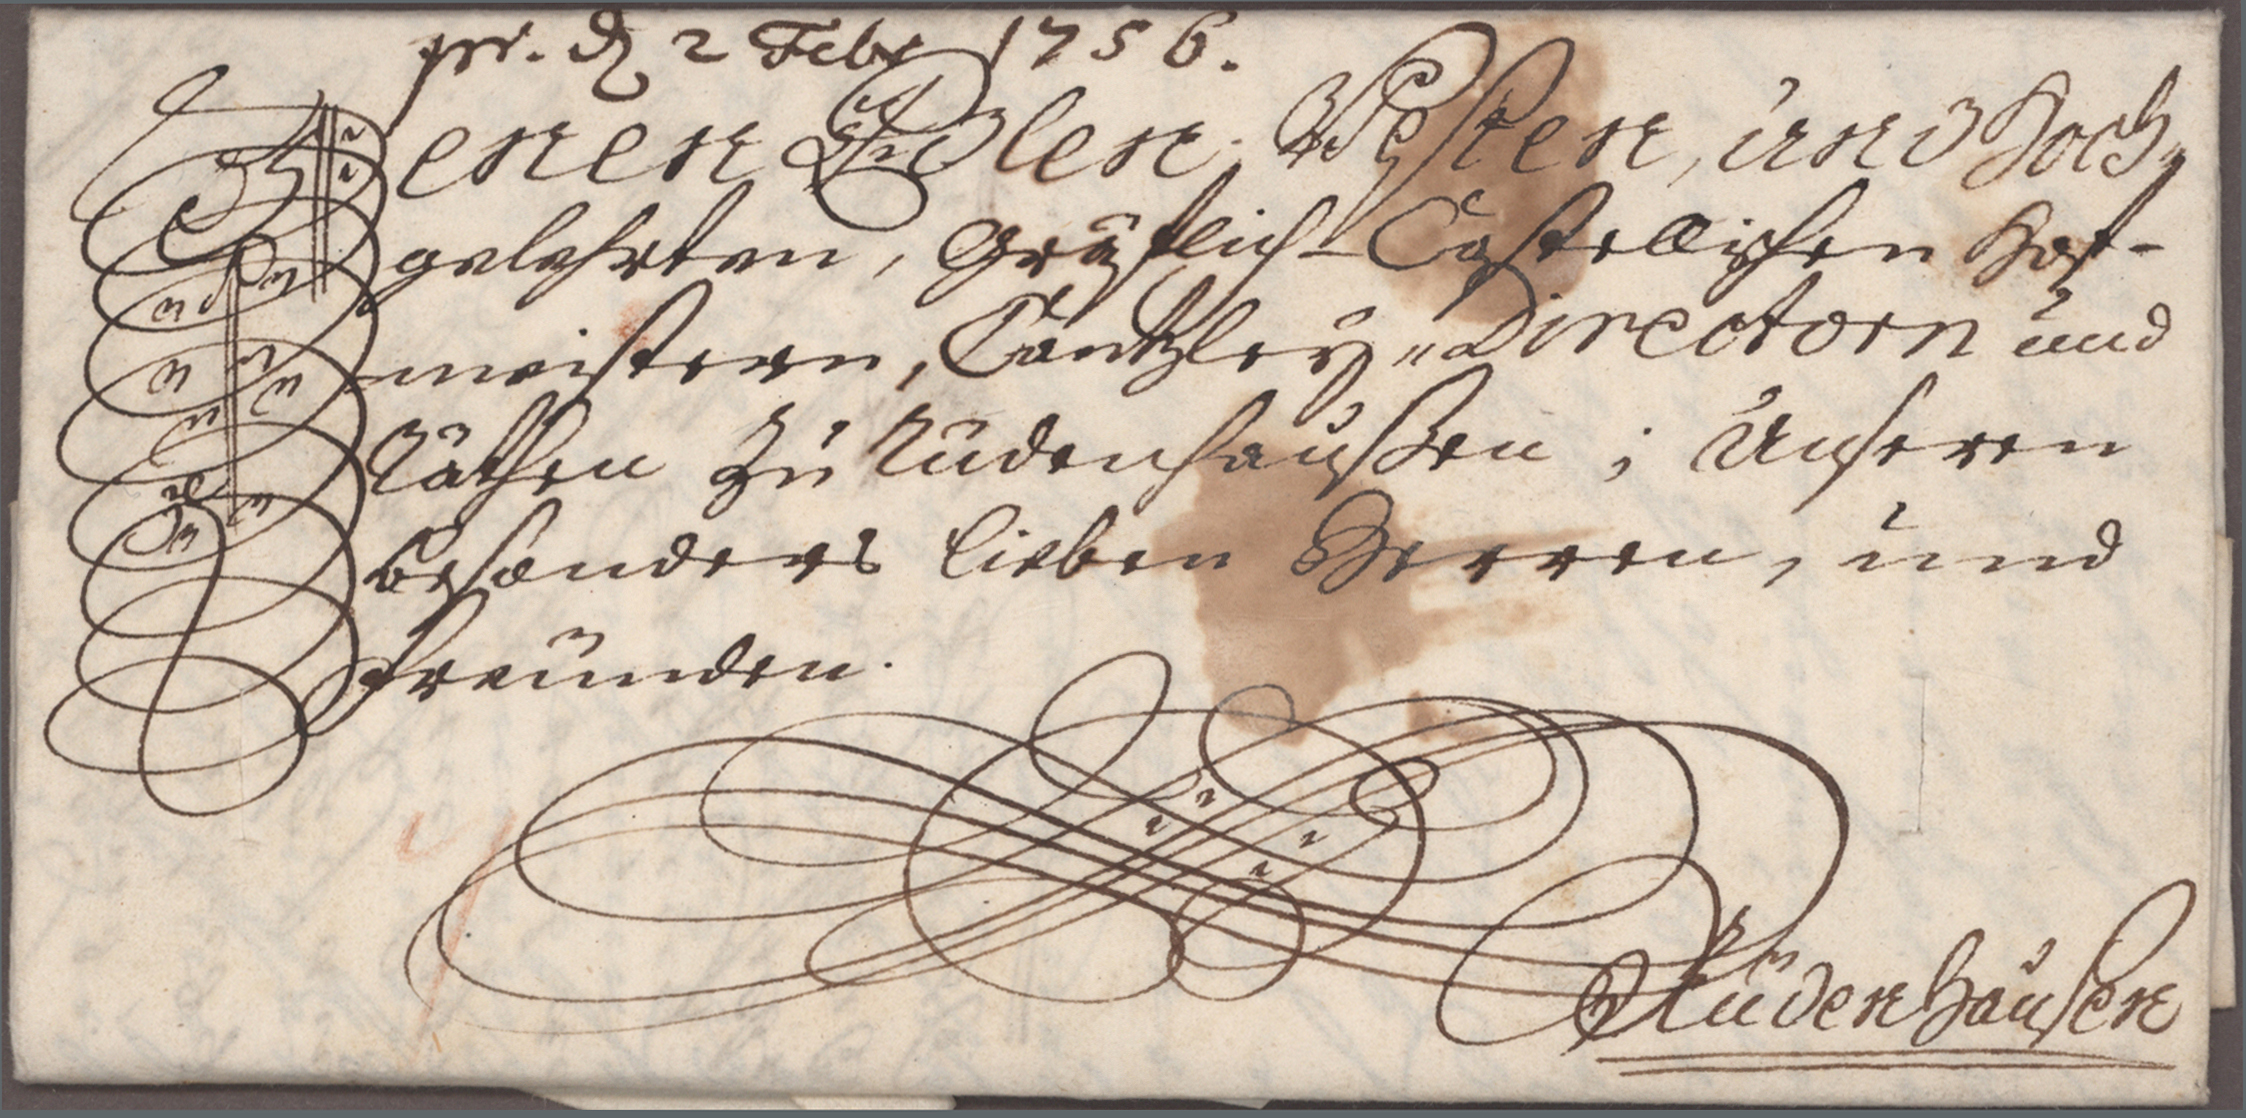 pr. d 2 Febr 1756.
Denen Edlen, Vesten, und Hoch,
gelehrten, Gräflich-Castellischen Hof-
meistern, Cantzley-Directorn und
Räthen zu Rüdenhaußen; Unseren
besonders lieben Herren, und
Freunden.
Rüdenhausen